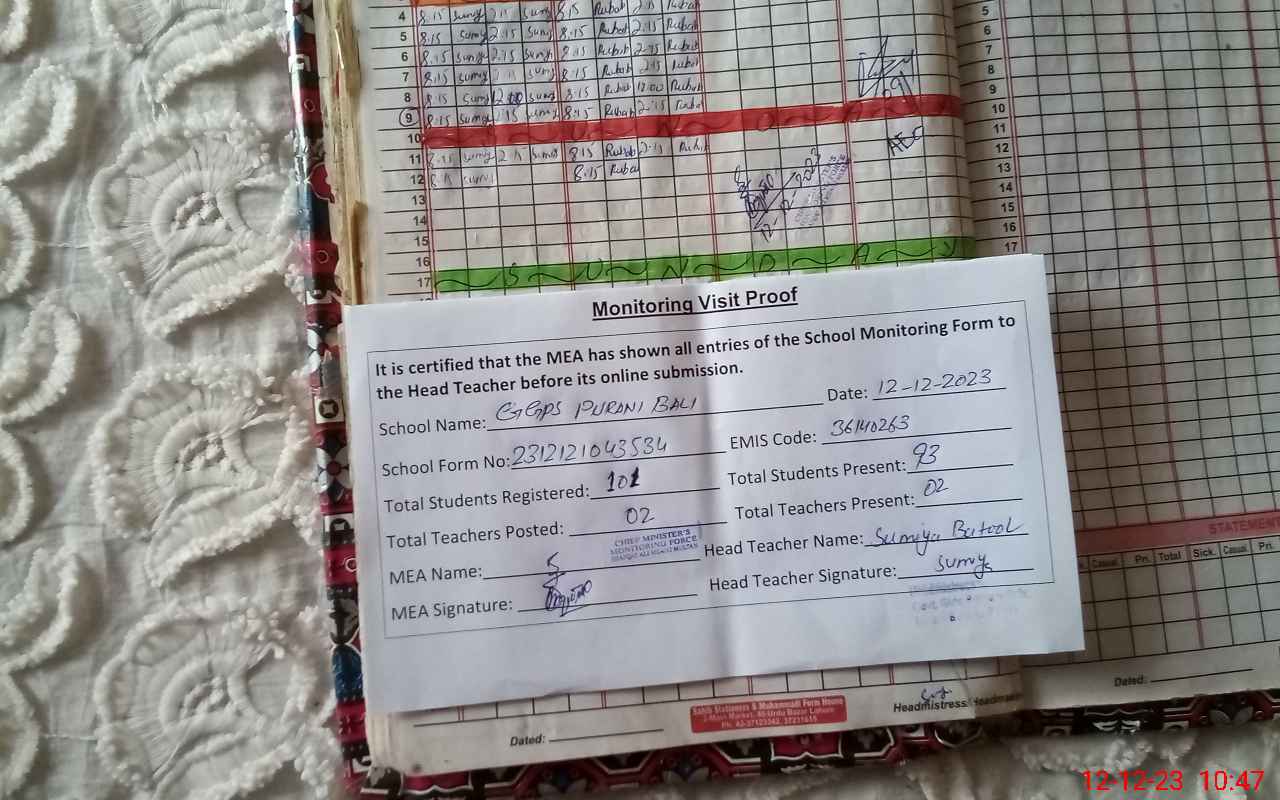 4 8.15 Sumy 2.15 Sumy 8.15 Rubab 2.15 Rubab
5 8.15 Sumy 2.15 Sumy 8.15 Rubab 2.15 Rubab
6 8.15 Sumy 2.15 Sumy 8.15 Rubab 2.15 Rubab
7 8.15 Sumy 2.15 Sumy 8.15 Rubab 2.15 Rubab
8 8.15 Sumy 12.00 Sumy 8.15 Rubab 12.00 Rubab
9 8.15 Sumy 2.15 Sumy 8.15 Rubab 2.15 Rubab
10
11 8.15 Sumy 2.15 Sumy 8.15 Rubab 2.15 Rubab
12 8.15 Sumy 8.15 Rubab
13
14
15
16
17 S U N D A Y
AEO
12-12-2023
5
6
7
8
9
10
11
12
13
14
15
16
17
Monitoring Visit Proof
It is certified that the MEA has shown all entries of the School Monitoring Form to
the Head Teacher before its online submission.
School Name: GGPS PURANI BALI Date: 12-12-2023
School Form No: 2312121043534 EMIS Code: 36140263
Total Students Registered: 101 Total Students Present: 93
Total Teachers Posted: 02 Total Teachers Present: 02
CHIEF MINISTER'S
MONITORING FORCE
MEA Name: Head Teacher Name: Sumiya Batool
MEA Signature: Head Teacher Signature: Sumy
STATEMENT
Casual Pri. Total Sick. Casual Pri.
Dated:
Sahib Stationers & Muhammadi Form House
2-Main Market, 40-Urdu Bazar Lahore
Ph. 42-37123342, 37231615
Headmistress/Headmaster
Dated:
12-12-23 10:47